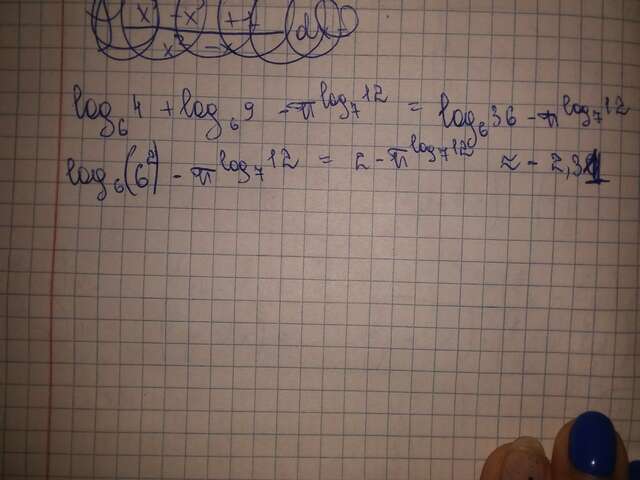 log₆4 + log₆9 - π^log₇12 = log₆36 - π^log₇12
log₆(6²) - π^log₇12 = 2 - π^log₇12 ≈ - 2,31